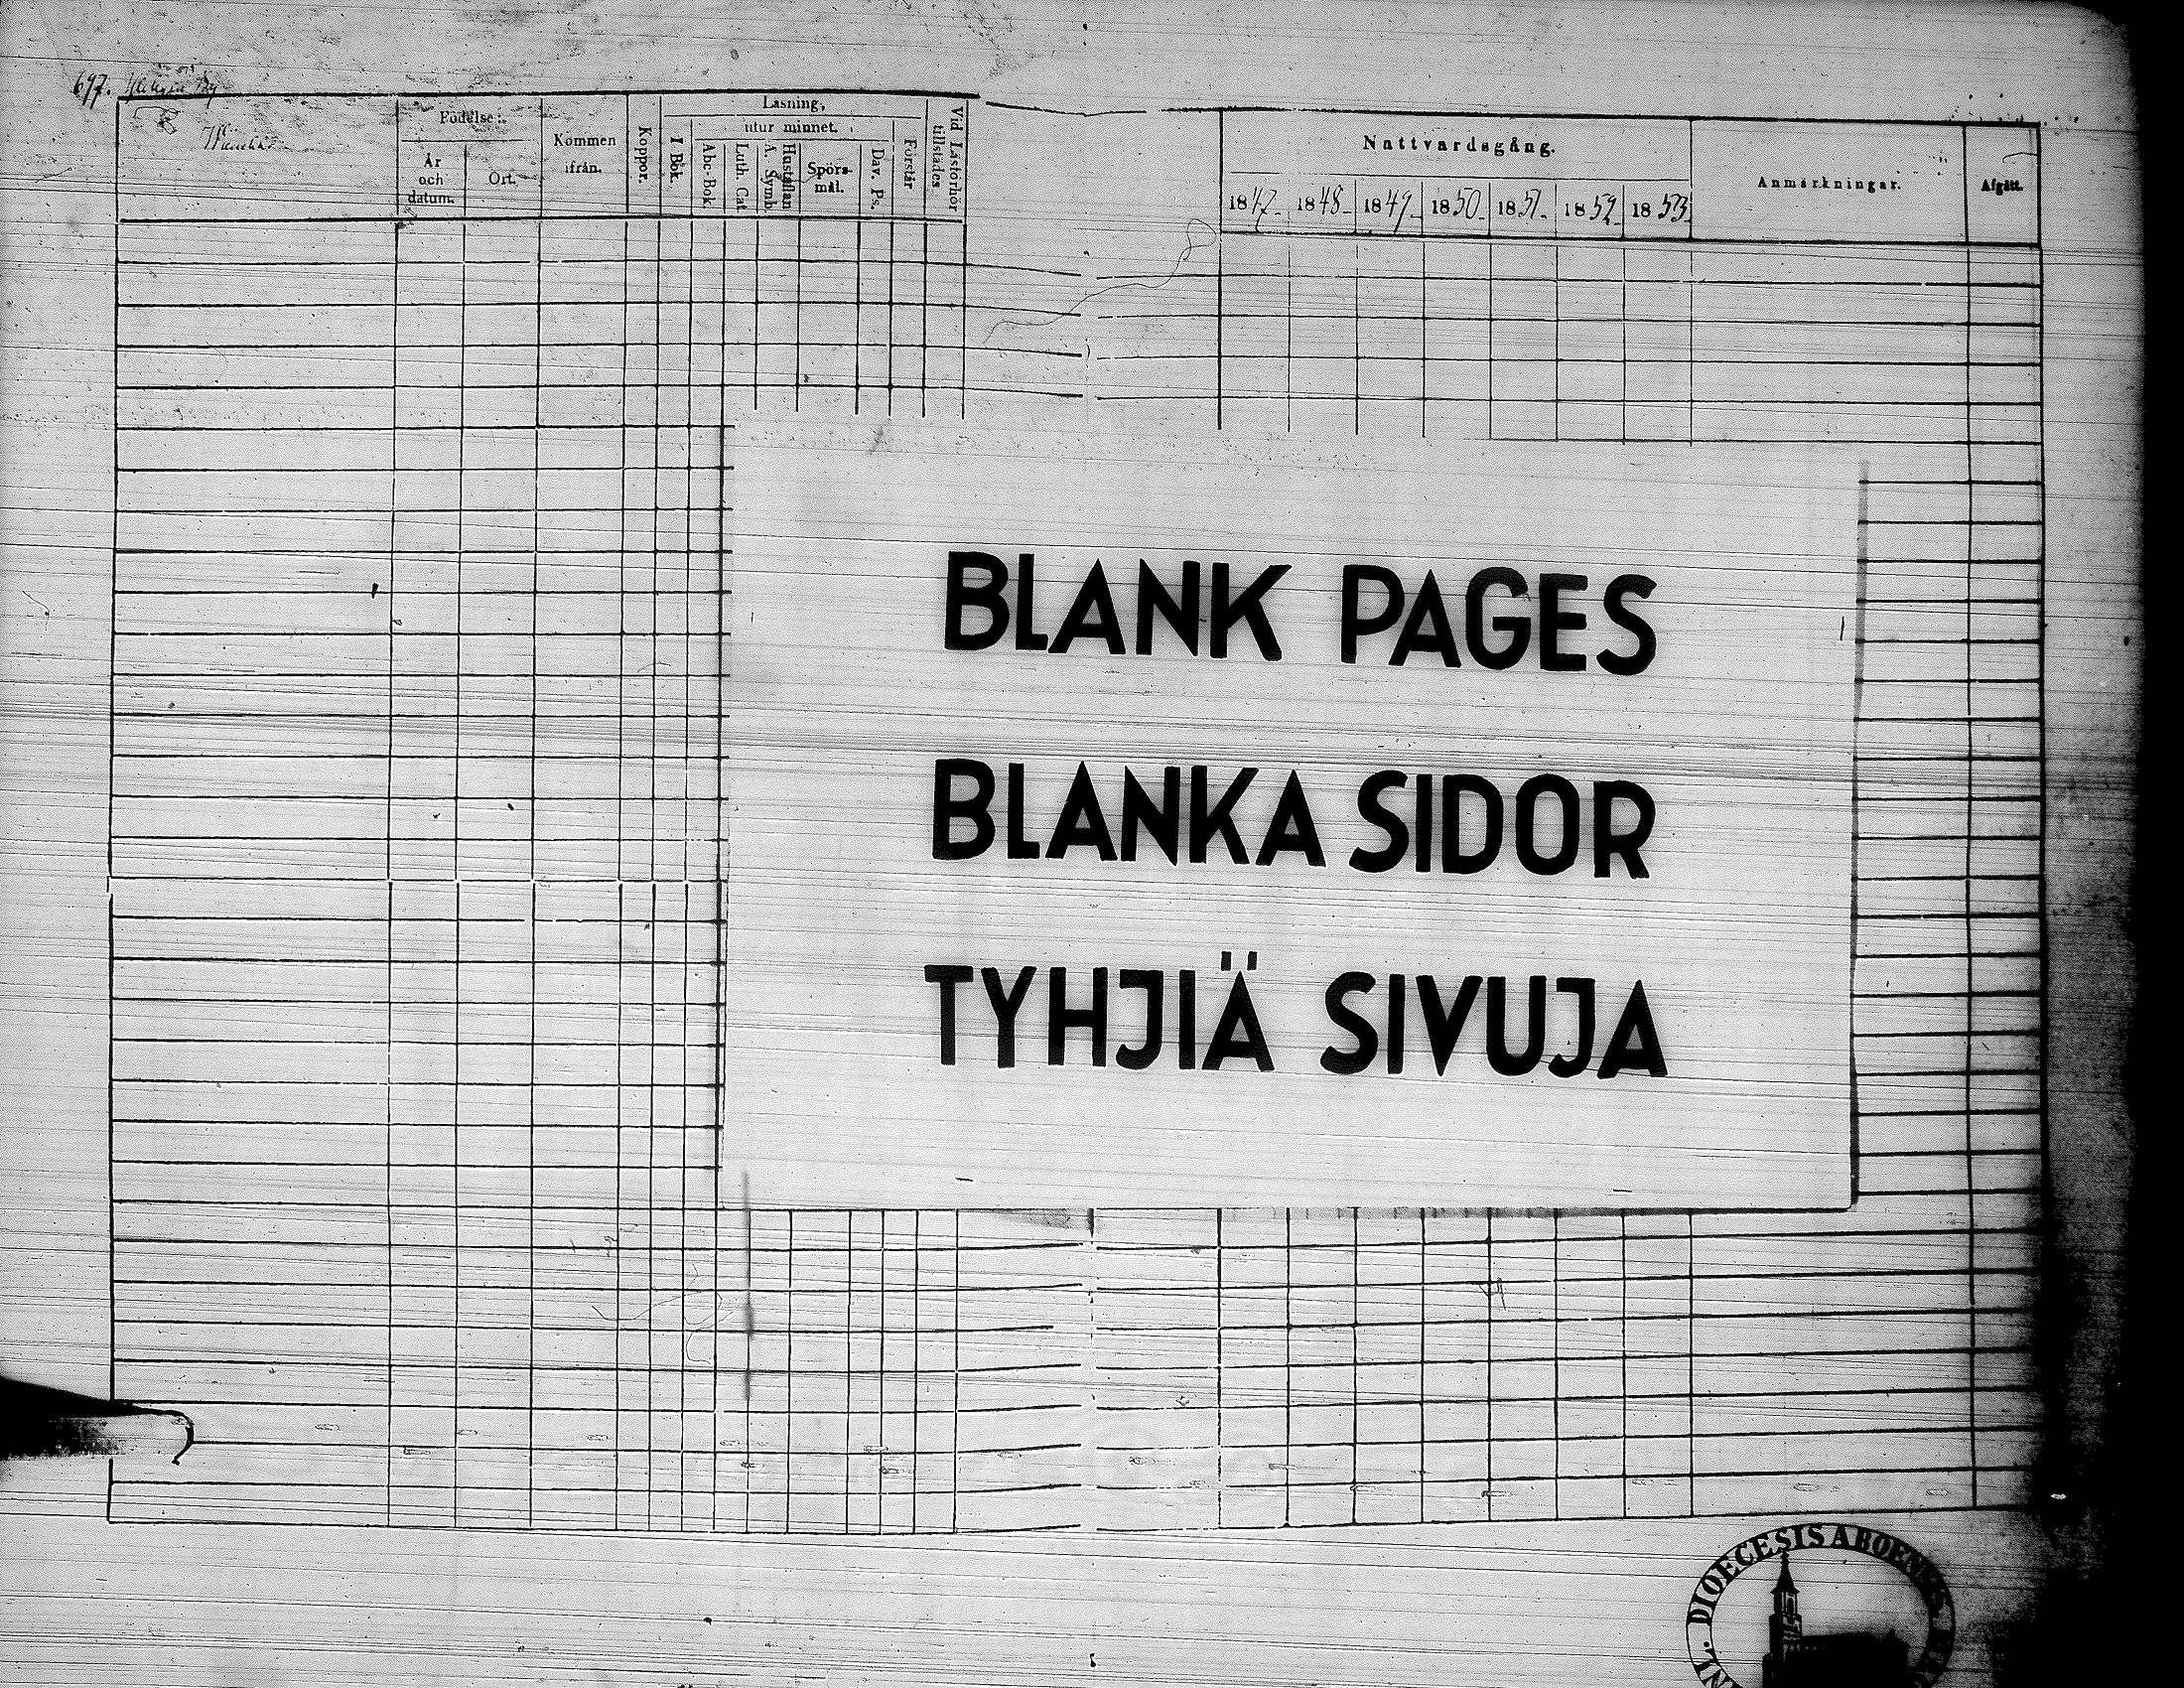 697.
Födelse:
År
och
datum.
Ort.
Kommen
ifrån.
Koppor.
Läsning,
I Bok.
utur minnet.
Abc-Bok.
Luth. Cat.
Hustaflan
A. Symb.
Spörs-
mål.
Dav. Ps.
Förstår
Vid Läsförhör
tillstädes
Nattvardsgång.
1847. 1848. 1849. 1850. 1851. 1852. 1853.
Anmärkningar.
Afgått.
BLANK PAGES
BLANKA SIDOR
TYHJIÄ SIVUJA
DIOECESIS ABOENSIS